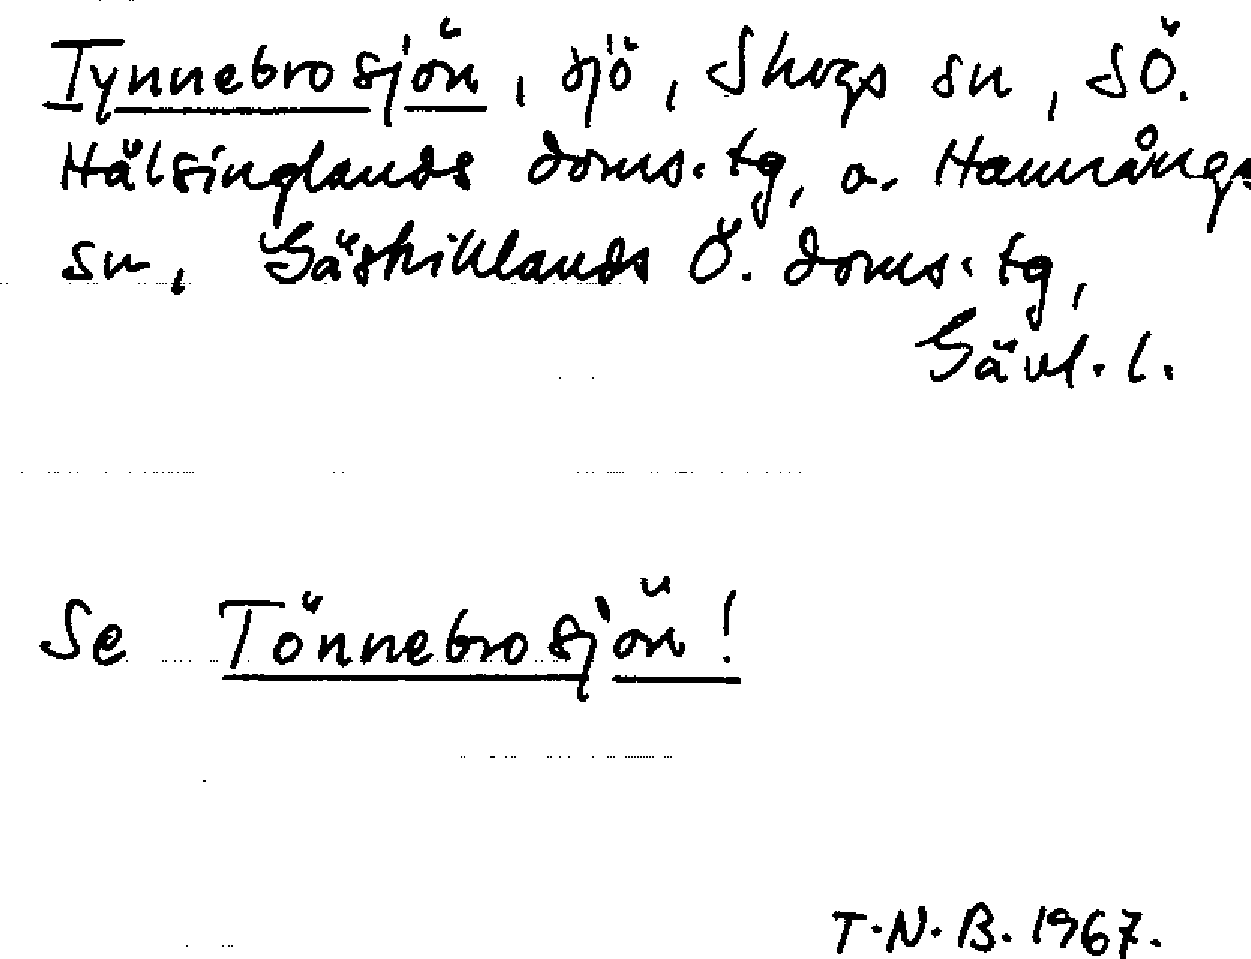 Tynnebrosjön, sjö, Skogs sn, SÖ.
Hälsinglands doms.tg, o. Hamrångs
sn, Gästriklands Ö. doms.tg,
Gävl.l.
Se Tönnebrosjön!
T.N.B. 1967.